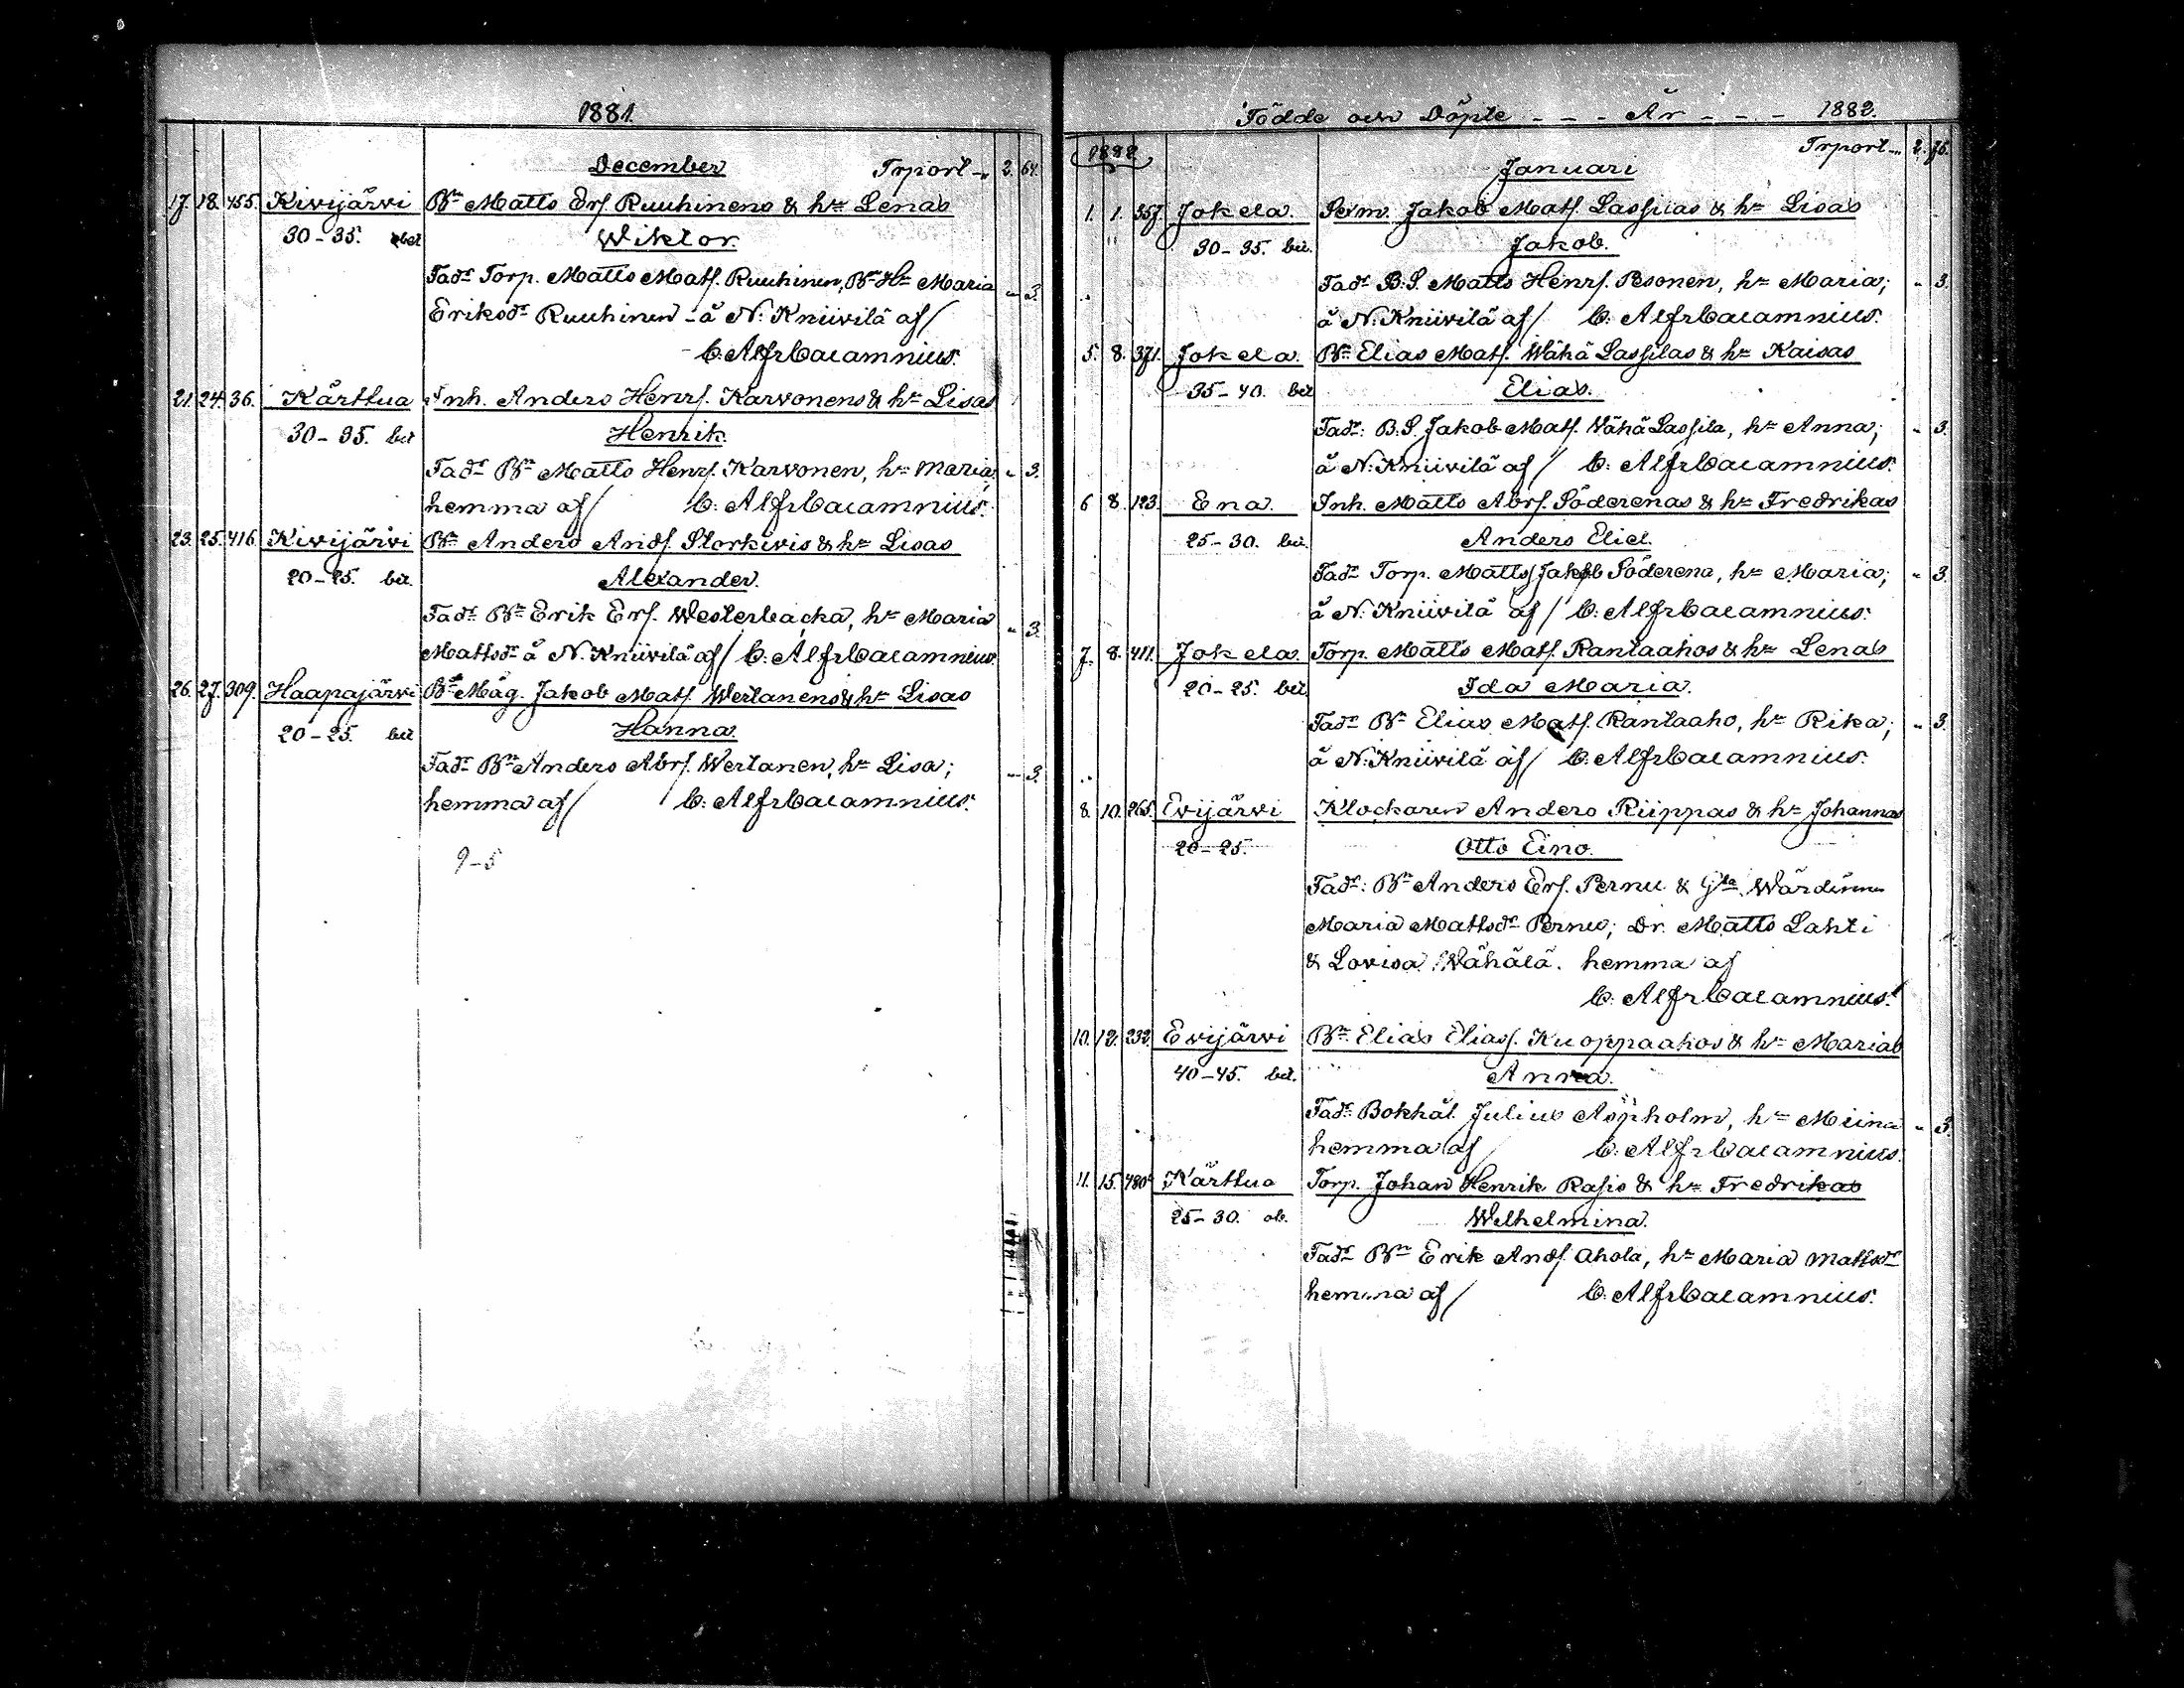 1881.
December Trport - " 2. 64.
17. 18. 455. Kivijärvi Bn Matts Ers. Ruuhinens & hu Lenas
30-35. bei Wiktor.
Fadr Torp. Matts Mats. Ruuhinen, Bn Hu Maria " 3.
Eriksdr Ruuhinen - å N: Kniivilä af/
C. AlfrCalamnius.
21. 24. 36. Kärttua Inh. Anders Henrs. Karvonens & hu Lisas
30-35. bei Henrik.
Fadr Bn Matts Henrs. Karvonen, hu Maria; " 3.
hemma af/ C: AlfrCalamnius.
23. 25. 416. Kivijärvi Bn Anders Ands. Storkivis & hu Lisas
20-25. bei. Alexander.
Fadr Bn Erik Ers. Westerbacka, hu Maria " 3.
Mattsdr å N. Kniivilä af/ C: AlfrCalamnius.
26. 27. 309. Haapajärvi Bs Måg. Jakob Mats. Wertanens & hu Lisas
20-25. bei Hanna.
Fadr Bn Anders Abrs. Wertanen, hu Lisa; " 3.
hemma af/ C: AlfrCalamnius.
9-5
Födde och Döpte - - - År - - - 1882.
1882 Trport - " 2. 76.
Januari
1. 1. 357. Jokela. Jakob Mats. Lassilas & hu Lisas
30-35. bei. Jakob.
Fadr B.S. Matts Henrs. Pesonen, hu Maria; " 3.
å N: Kniivilä af/ C: AlfrCalamnius.
5. 8. 371. Jokela. Bn Elias Mats. Wähä Lassilas & hu Kaisas
35-40. bei Elias.
Fadr: B.S. Jakob Mats. Wähä Lassila, hu Anna; " 3.
å N: Kniivilä af/ C: AlfrCalamnius.
6 8. 123. Ena. Inh. Matts Abrs. Söderenas & hu Fredrikas
25-30. bei. Anders Eliel.
Fadr Torp. Matts Jakob Söderena, hu Maria; " 3.
å N: Kniivilä af/ C: AlfrCalamnius.
7. 8. 411. Jokela. Torp. Matts Mats. Rantaahos & hu Lenas
20-25. bei Ida Maria.
Fadr Bn Elias Mats. Rantaaho, hu Rika; " 3.
å N: Kniivilä af/ C. AlfrCalamnius.
8. 10. 265. Evijärvi Klockaren Anders Riippas & hu Johannas
20-25. Otto Eino.
Fadr: Bn Anders Ers. Pernu & Gla Wärdinnan
Maria Mattsdr Pernu; Dr. Matts Lahti
& Lovisa Wähälä. hemma af
C: AlfrCalamnius.
10. 12. 232. Evijärvi Bn Elias Elias. Kuoppaahos & hu Marias
40-45. bei. Anna.
Fadr Bokhål. Julius Aspholm, hu Miina " 3.
hemma af C: AlfrCalamnius.
11. 15. 480. Kärttua Torp. Johan Henrik Rasis & hu Fredrikas
25-30. ob. Wilhelmina.
Fadr Bn Erik Ands. Ahola, hu Maria Mattsdr
hemma af/ C. AlfrCalamnius.